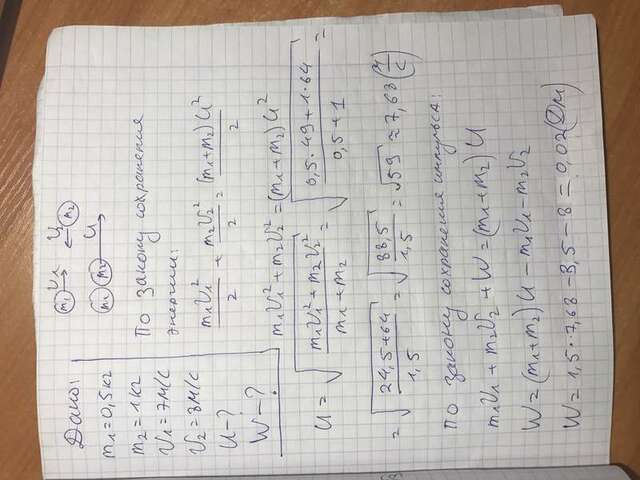 Дано:
m₁=0,5кг
m₂=1кг
V₁=7м/с
V₂=8м/с
U-?
W-?
m₁ V₁ U₂ m₂
m₁ m₂ U
По закону сохранения
энергии:
m₁V₁²/2 + m₂V₂²/2 = (m₁+m₂)U²/2
m₁V₁²+m₂V₂²=(m₁+m₂)U²
U = √(m₁V₁²+m₂V₂²/m₁+m₂) = √(0,5·49+1·64/0,5+1) =
= √(24,5+64/1,5) = √(88,5/1,5) = √59 ≈ 7,68 (м/с)
По закону сохранения импульса:
m₁V₁+m₂V₂+W=(m₁+m₂)U
W=(m₁+m₂)U-m₁V₁-m₂V₂
W=1,5·7,68-3,5-8=0,02(Дж)